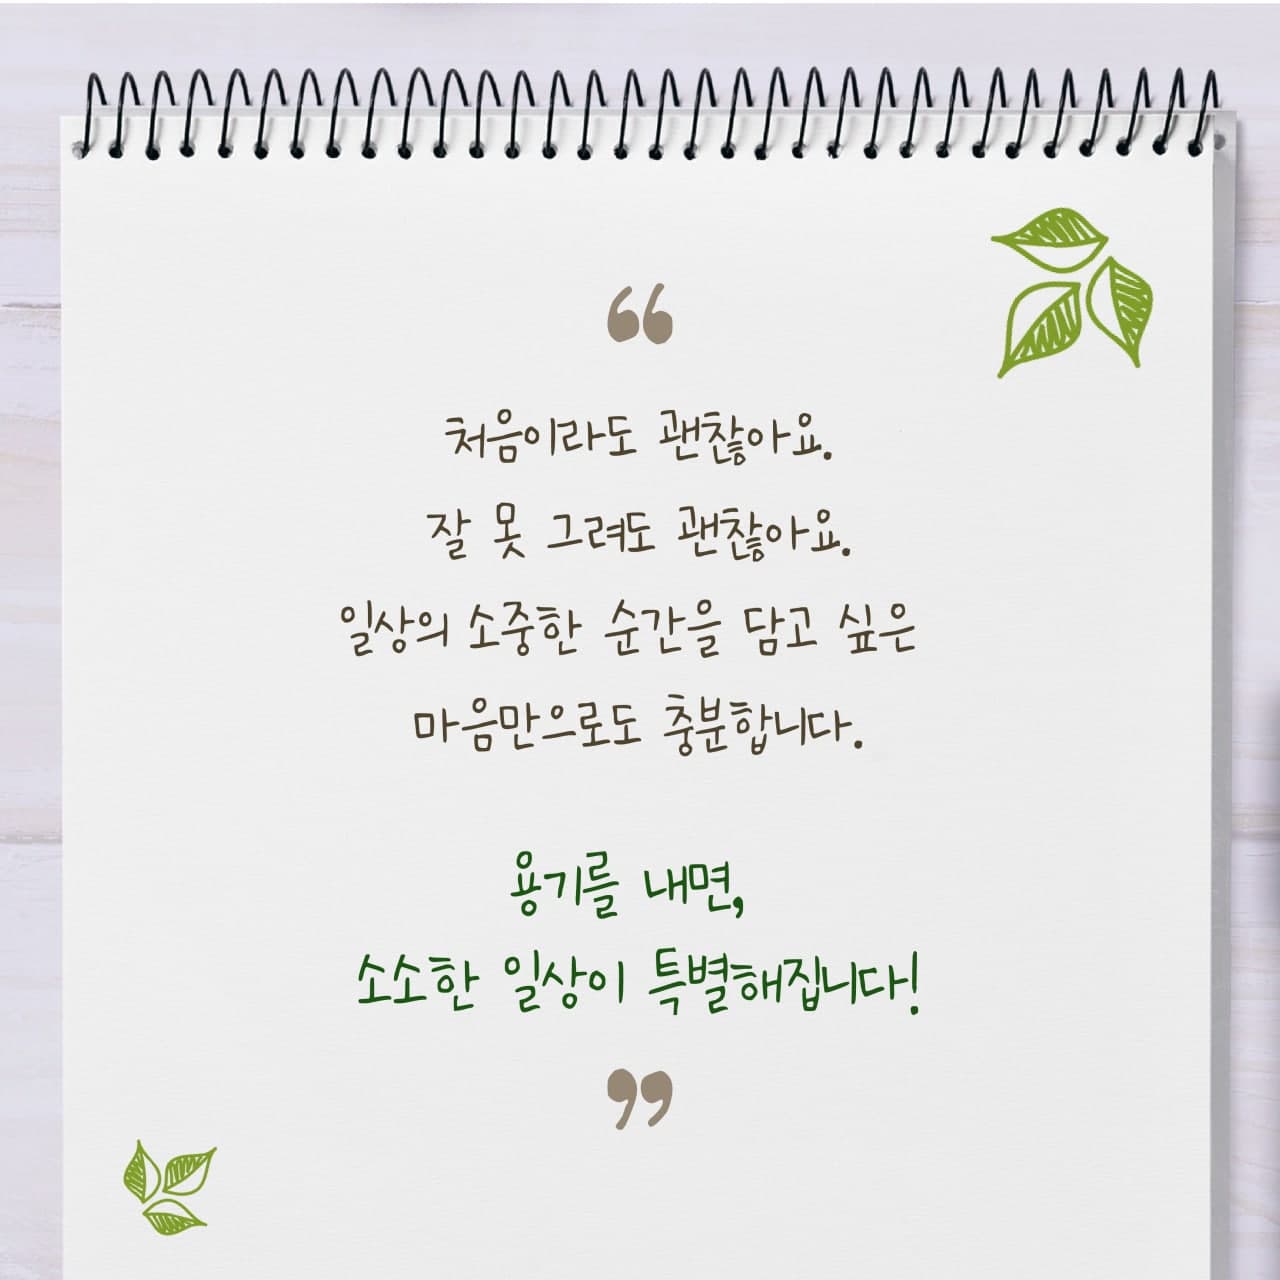 “
처음이라도 괜찮아요.
잘 못 그려도 괜찮아요.
일상의 소중한 순간을 담고 싶은
마음만으로도 충분합니다.
용기를 내면,
소소한 일상이 특별해집니다!
”